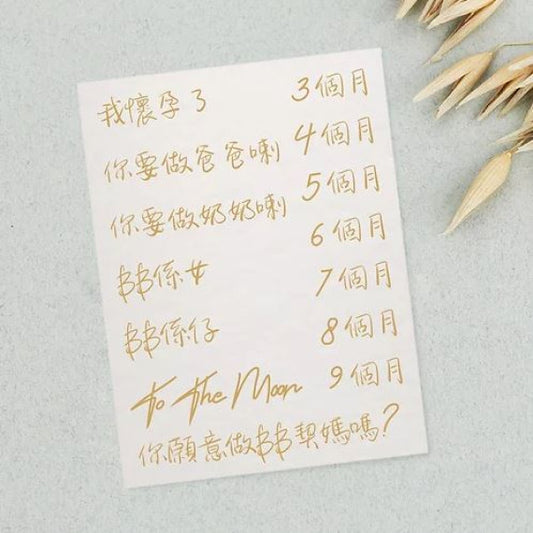 我懷孕了 3個月
你要做爸爸喇 4個月
你要做奶奶喇 5個月
BB係女 6個月
BB係仔 7個月
8個月
To The Moon 9個月
你願意做BB契媽嗎?